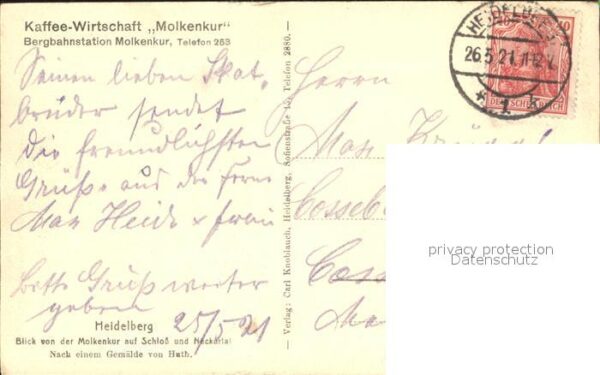 Kaffee-Wirtschaft „Molkenkur"
Bergbahnstation Molkenkur, Telefon 253
Seinen lieben Skat-
brüder sendet
die freundlichsten
Grüße aus der Ferne
Max Heide & Frau
bitte Grüße weiter
geben
25/5 21
Heidelberg
Blick von der Molkenkur auf Schloß und Neckartal
Nach einem Gemälde von Huth.
Verlag: Carl Knoblauch, Heidelberg, Sofienstraße 15, Telefon 2880.
Herrn
Max
HEIDELBERG
26.5.21.11-12 V.
* 1
DEUTSCHES REICH
privacy protection
Datenschutz